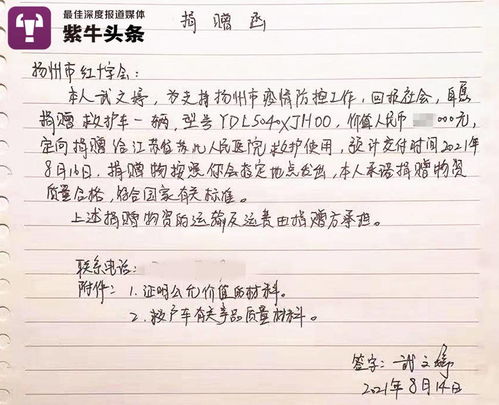 最佳深度报道媒体
紫牛头条
捐赠函
扬州市红十字会:
本人武文婷,为支持扬州市疫情防控工作,回报社会,自愿
捐赠救护车一辆,型号YDL5040XJH00,价值人民币 000元,
定向捐赠给江苏省苏北人民医院救护使用,预计交付时间2021年
8月16日,捐赠物按照你会指定地点发出,本人承诺捐赠物资
质量合格,符合国家有关标准。
上述捐赠物资的运输及运费由捐赠方承担。
联系电话:
附件:1.证明公允价值的材料。
2.救护车有关产品质量材料。
签字:武文婷
2021年8月14日